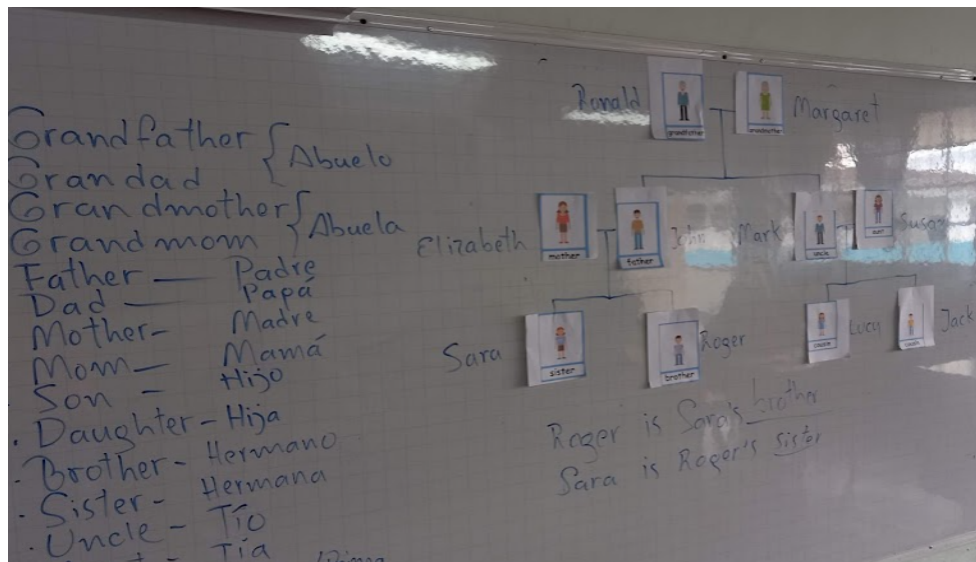 Grandfather
Grandad
Abuelo
Grandmother
Grandmom
Abuela
Father — Padre
Dad — Papá
Mother - Madre
Mom — Mamá
Son - Hijo
. Daughter - Hija
. Brother - Hermano
. Sister - Hermana
. Uncle - Tío
Tía
Ronald
grandfather
grandmother
Margaret
Elizabeth
mother
father
John
Mark
uncle
aunt
Susan
Sara
sister
brother
Roger
cousin
Lucy
cousin
Jack
Roger is Sara's brother
Sara is Roger's sister